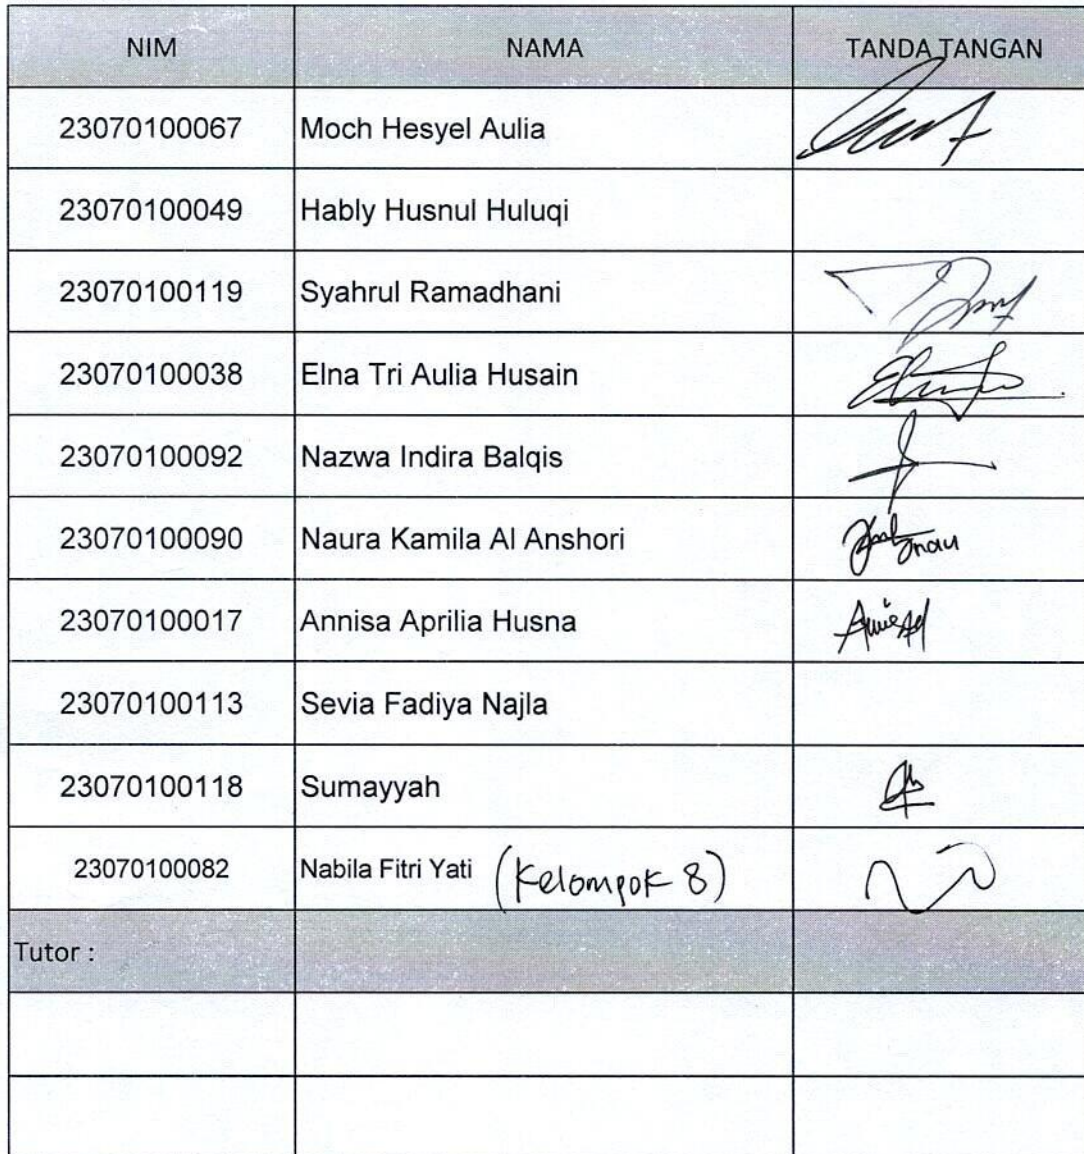 NIM NAMA TANDA TANGAN
23070100067 Moch Hesyel Aulia
23070100049 Hably Husnul Huluqi
23070100119 Syahrul Ramadhani
23070100038 Elna Tri Aulia Husain
23070100092 Nazwa Indira Balqis
23070100090 Naura Kamila Al Anshori
23070100017 Annisa Aprilia Husna
23070100113 Sevia Fadiya Najla
23070100118 Sumayyah
23070100082 Nabila Fitri Yati (Kelompok 8)
Tutor :